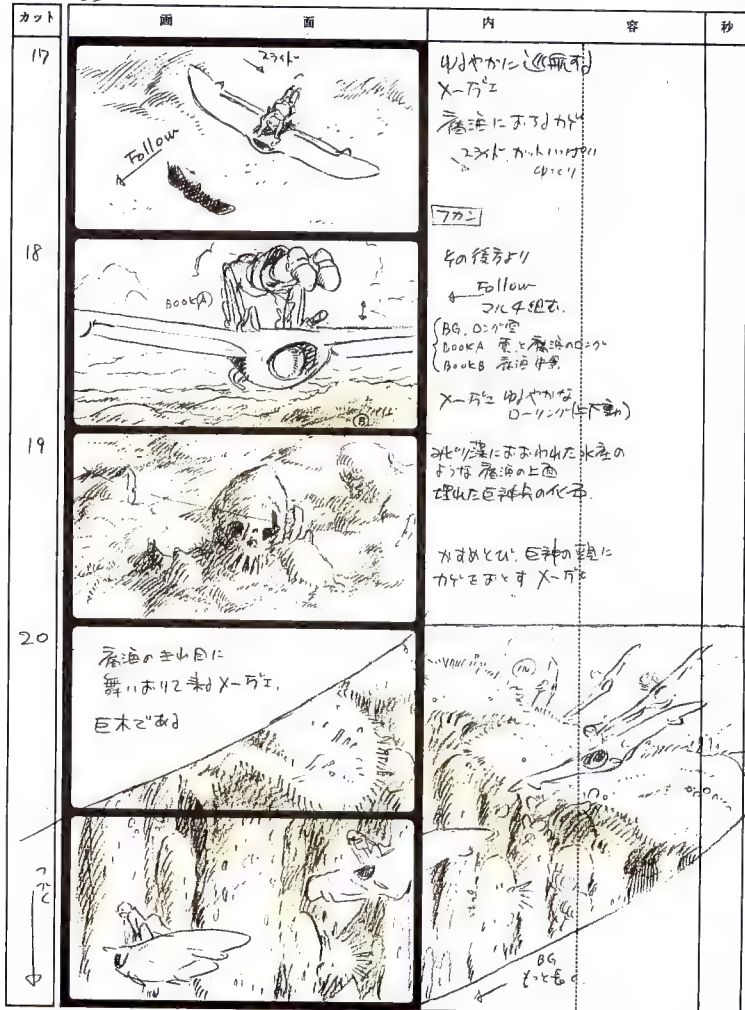 カット 画 面 内 容 秒
17
スライド
Follow
ゆるやかに巡航する
メーヴェ
腐海におちるカゲ
スライド カットいっぱい
ゆっくり
フカン
18
BOOK(A)
B
その後方より
Follow
マルチ組む.
BG. ロング空
BOOK A 雲と腐海のロング
BOOK B 腐海中景
メーヴェ ゆるやかな
ローリング(上下動)
19
におおわれた氷座の
ような腐海の上面
埋れた巨神兵の化石.
かすめとび. 巨神の頭に
カゲをおとすメーヴェ
20
腐海の切れ目に
舞いおりて来るメーヴェ.
巨木である
IN
つづく
BG
もっと長く